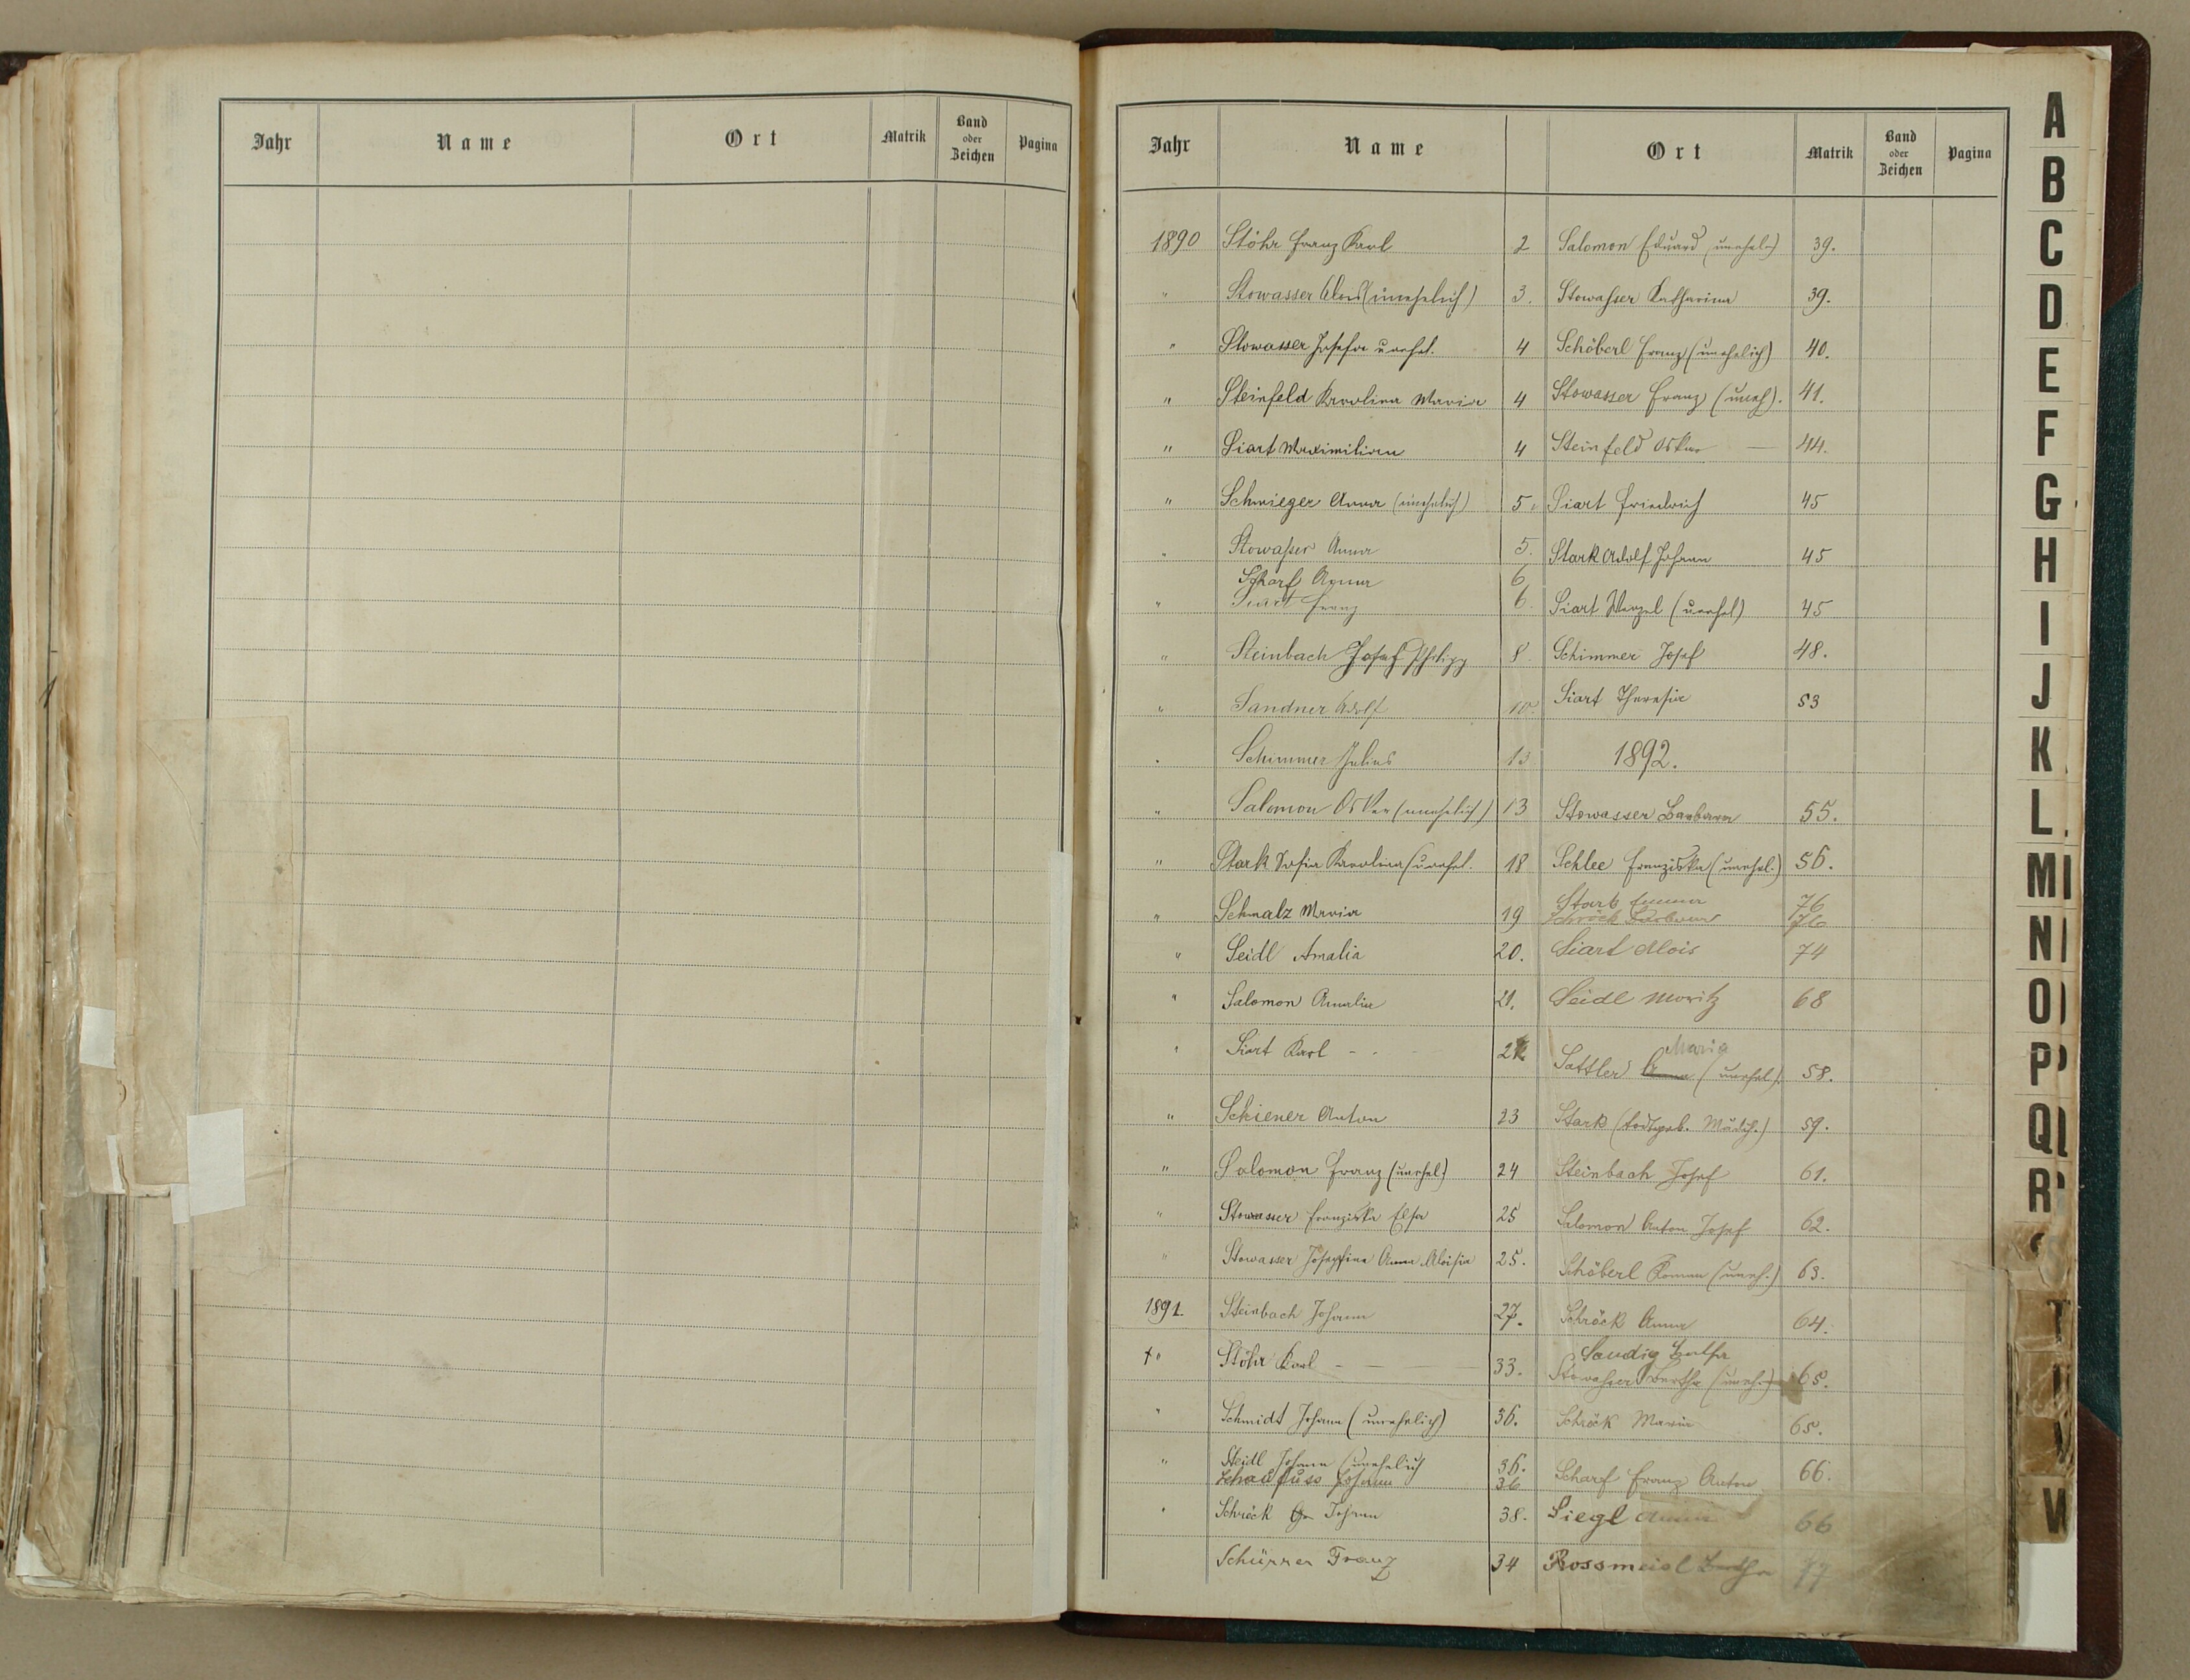 Jahr Name Ort Matrik Band oder Zeichen Pagina
Jahr Name Ort Matrik Band oder Zeichen Pagina
1890 Stöhr Franz Karl 2 Salomon Eduard (unehel.) 39.
" Stowasser Alois (unehelich) 3. Stowasser Katharina 39.
" Stowasser Josefa unehel. 4 Schöberl Franz (unehelich) 40.
" Steinfeld Karolina Maria 4 Stowasser Franz (uneh). 41.
" Siart Maximilian 4 Steinfeld Oskar — 44.
" Schmieger Anna (unehelich) 5. Siart Friedrich 45
" Stowasser Anna 5. Stark Adolf Johann 45
Scharf Anna 6
" Siart Franz 6. Siart Wenzel (unehel) 45
" Steinbach Josef Philipp 8. Schimmer Josef 48.
" Sandner Adolf 10. Siart Theresia 53
" Schimmer Julius 13 1892.
" Salomon Oskar (unehelich) 13 Stowasser Barbara 55.
" Stark Sofia Karolina (unehel. 18 Schlee Franziska (unehel.) 56.
Stark Emma 76
" Schmalz Maria 19 Schröck Barbara 76
" Seidl Amalia 20. Siart Alois 74
" Salomon Amalia 21. Seidl Moritz 68
Maria
" Siart Karl - - 22 Sattler Anna (unehel.) 58.
" Schiener Anton 23 Stark (todtgeb. Mädch.) 59.
" Salomon Franz (unehel.) 24 Steinbach Josef 61.
" Stowasser Franziska Elsa 25 Salomon Anton Josef 62.
" Stowasser Josephine Anna Aloisia 25. Schöberl Roman (uneh.) 63.
1891. Steinbach Johann 27. Schröck Anna 64.
Sandig Bertha
† " Stöhr Karl - — — 33. Stowasser Bertha (uneh.) 65.
" Schmidt Johann (unehelich) 36. Schröck Maria 65.
" Seidl Johann (unehelich 36. Scharf Franz Anton 66.
Schaufuss Johann 36
" Schröck Johann 38. Siegl Anna 66
Schürrer Franz 34 Rossmeisl Bertha 77
A
B
C
D
E
F
G
H
I
J
K
L
M
N
O
P
Q
R
T
V